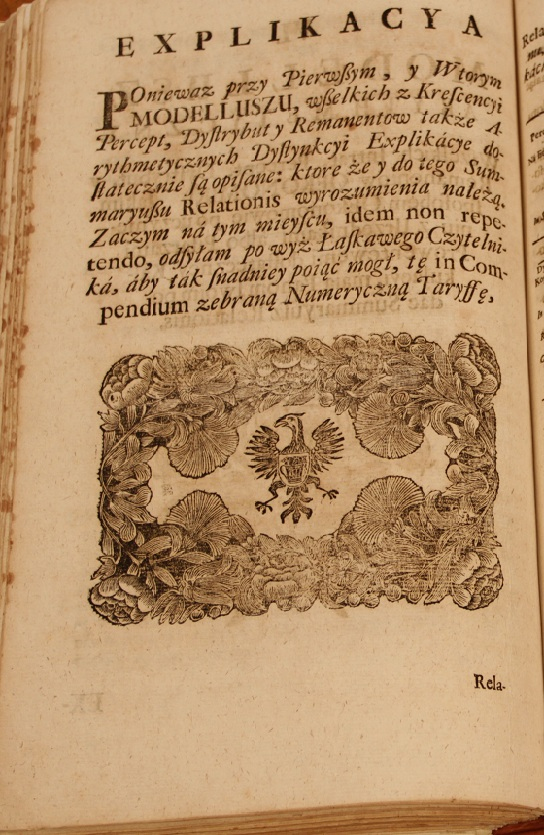 EXPLIKACYA
POniewaz przy Pierwßym, y Wtorym
MODELLUSZU, wßelkich z Kreſcencyi
Percept, Dyſtrybut y Remanentow także A-
rythmetycznych Dyſtynkcyi Explikácye do-
ſtatecznie ſą opiſane: ktore że y do tego Sum-
maryußu Relationis wyrozumienia należą.
Zaczym ná tym mieyſcu, idem non repe-
tendo, odſyłam po wyż Łaſkawego Czytelni-
ká, áby ták ſnadniey poiąć mogł, tę in Com-
pendium zebraną Numeryczną Taryffę,
Rela-